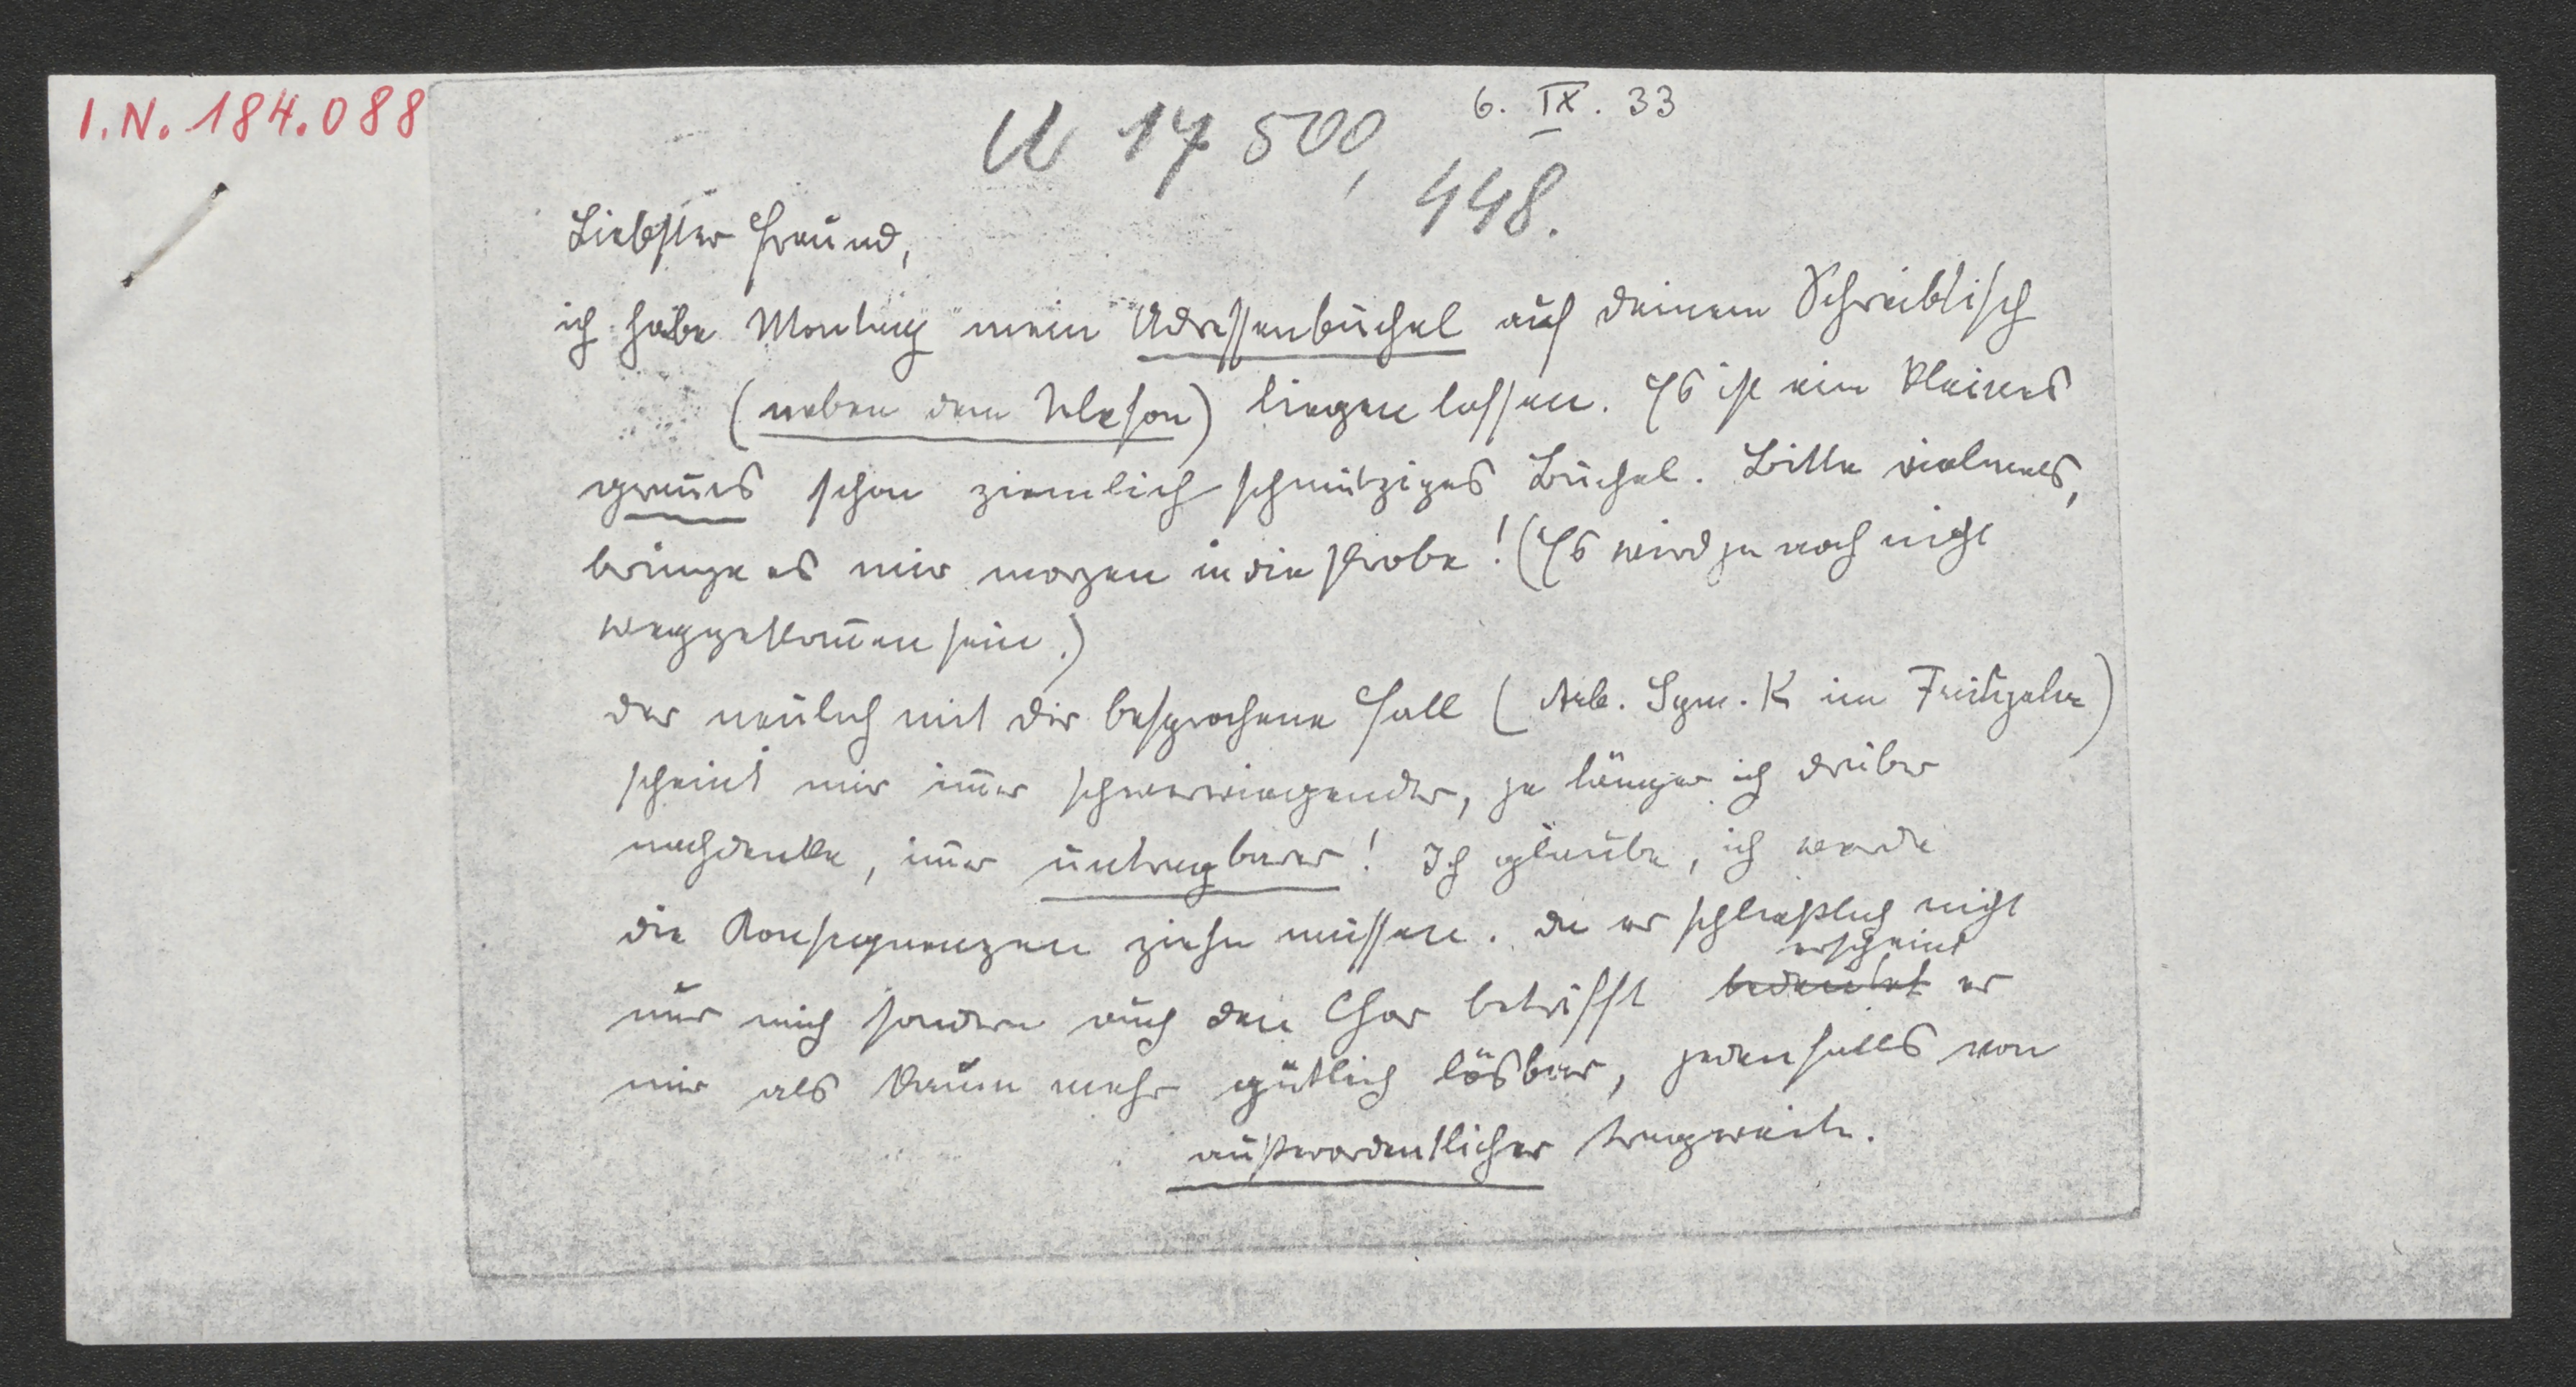 I.N. 184.088
6. IX. 33
U 17 500,
448.
Liebster Freund,
ich habe Montag mein Adressenbüchel auf deinem Schreibtisch
(neben dem Telefon) liegen lassen. Es ist ein kleines
graues schon ziemlich schmutziges Büchel. Bitte vielmals,
bringe es mir morgen in die Probe! (Es wird ja noch nicht
weggekom̅en sein.)
der neulich mit dir besprochene Fall (Arb. Sym. K im Frühjahr)
scheint mir im̅er schwerwiegender, je länger ich drüber
nachdenke, im̅er untragbarer! Ich glaube, ich werde
die Konsequenzen ziehn müssen. da er schließlich nicht
erscheint
nur mich sondern auch den Chor betrifft bedeutet er
mir als kaum mehr gütlich lösbar, jedenfalls von
außerordentlicher Tragweite.